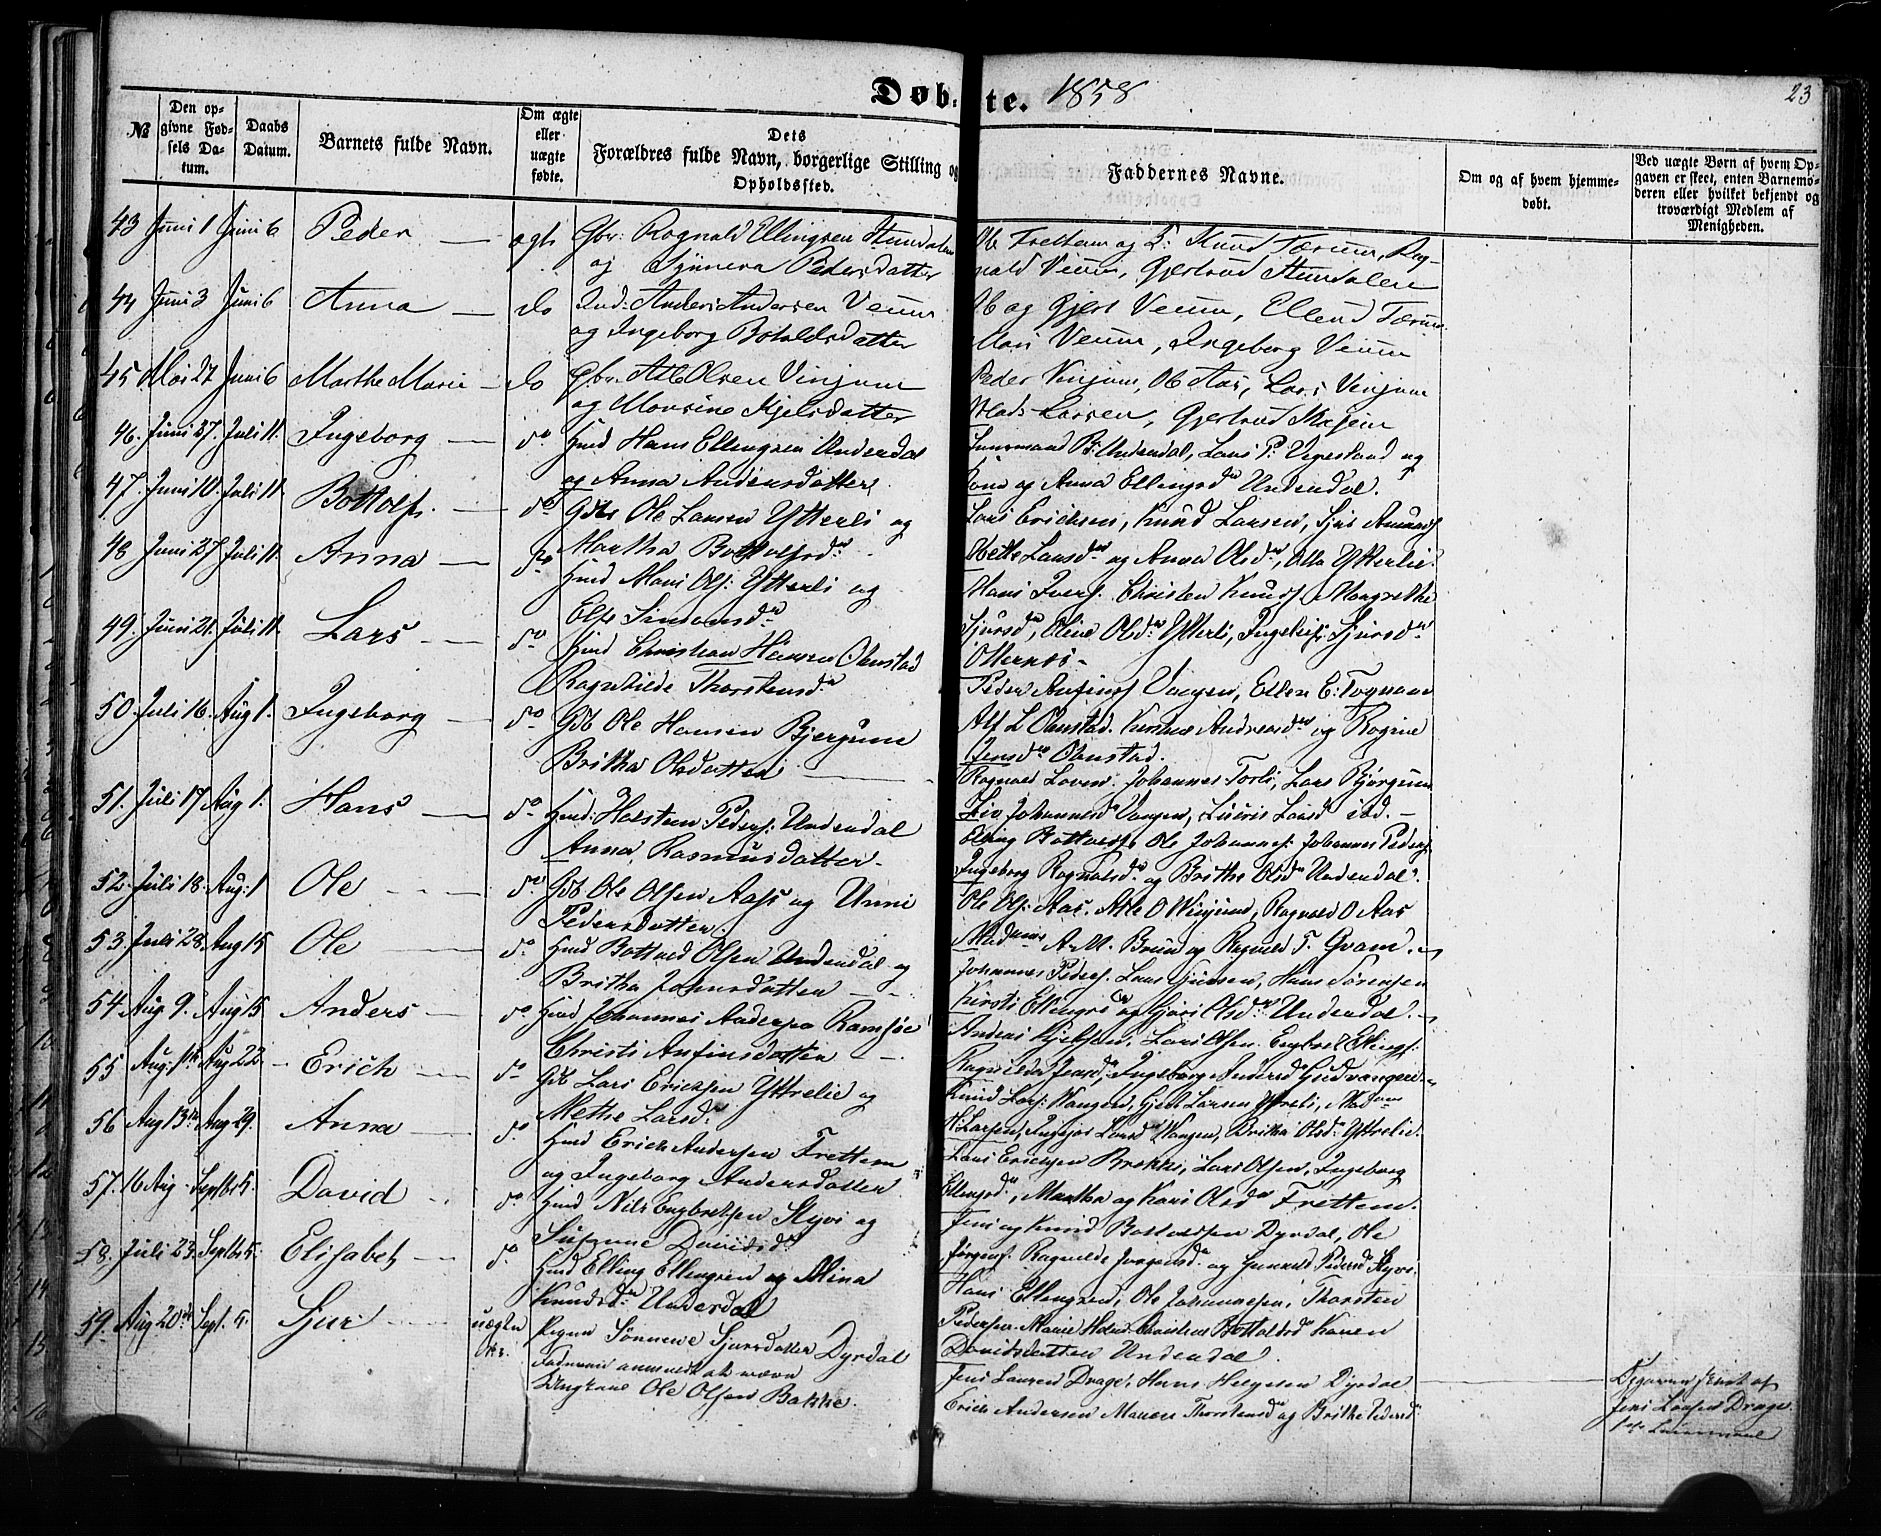 Døb-te. 1858
23
№
Den op-
givne Fød-
sels Da-
tum.
Daabs
Datum.
Barnets fulde Navn.
Om ægte
eller
uægte
fødte.
Dets
Forældres fulde Navn, borgerlige Stilling og
Opholdssted.
Faddernes Navne.
Om og af hvem hjemme-
døbt.
Ved uægte Børn af hvem Op-
gaven er skeet, enten Barnemo-
deren eller hvilket bekjendt og
troværdigt Medlem af
Menigheden.
43 Juni 1 Juni 6 Peder ægte Gbr: Rognald Ellingsen
og Synneva Pedersdatter
Ole Frettem og Knud
nald Veum, Gjertrud
44 Juni 3 Juni 6 Anna do Ind: Anders Andersen Veum
og Ingeborg Botoldsdatter
Ole og Gjert Veum, Ellend
Mari Veum, Ingeborg Veum
45 Mai 27 Juni 6 Marthe Marie do Gbr. Atle Olsen Vinjum
og Monsine Kjelsdatter
Peder Vinjum, Ole Aas, Lars Vinjum
Mads Larsen, Gjertrud
46. Juni 27. Juli 11. Ingeborg do Hmd Hans Ellingsen Underdal
og Anna Andersdatter
Lensmand B: Underdal, Lars P:
og Anna Ellingsdr Underdal.
47. Juni 10. Juli 11. Bottolf. do Gdb Ole Larsen Ytterli og
Martha Bottolfsdr
Lars Ericksen, Knud Larsen, Sjur
Mette Larsdr og Anna Olsdr, Ytterlie.
48 Juni 27 Juli 11. Anna do Hmd Mons Ols: Ytterli og
Else Simonsd
Hans Ivers. Christen Knuds Margrethe
Sjursdr, Eline Olsdr Ytterli, Sjursdr
Otternes
49. Juni 21. Juli 11. Lars do Hmd Christian Hansen Ohnstad
Ragnhilde Thorstensdr
Peder Anfins Vangen, Ellen E:
Atl L Ohnstad. Andreasdr og Rogine
Jensdr Ohnstad.
50. Juli 16. Aug 1. Ingeborg do Gdb Ole Hansen Bjergum
Britha Olsdatter
Rognald Johannes Lars Bjørgum
Liv Johannesdr Vangen, Larsd ibd.
51. Juli 17 Aug 1. Hans do Hmd: Holsteen Peders: Underdal
Anna Rasmusdatter
Elling Bottolfs Ole Johannes: Johannes Peders
Ingeborg Rognaldsdr og Brithe Olsdr Underdal.
52. Juli 18. Aug: 1 Ole do Gdb Ole Olsen Aass og Unni
Pedersdatter.
Ole Ols: Aas. Atle O Vinjum, Rognald O Aas
Madame A. M. Brun og Rognild T. Qvam.
53. Juli 28. Aug 15 Ole do Hmd Bottold Olsen Underdal og
Britha Johnsdatter
Johannes Peders. Lars Hans Sørensen
Kirsti Ellingsdr og Olsdr Underdal.
54 Aug. 9. Aug 15 Anders do Hmd Johannes Andersen Ramsøe
Christi Anfinsdatter
Anders Lars Olsen Engebret Ellings:
Jensdr, Ingeborg Andersd Gudvangen
55 Aug. 11te Aug 22 Erich do Gdb Lars Ericksen Yttrelie og
Methe Larsdr
Knud Lars: Vangen, Gjert Larsen Yttreli, Madame
H Larsen, Larsd Vangen, Britha Olsd: Yttrelie.
56 Aug 13te Aug 29. Anna do Hmd Erick Andersen Frettem
og Ingeborg Andersdatter
Lars Ericksen Brekke, Lars Olsen, Ingeborg
Ellingsdr, Martha og Kari Olsdr Frettem.
57. 16 Aug Septbr 5. David do Hmd Nils Engbretsen Styvi og
Susanne Davidsdr
Jens og Knud Bottoldsen Dyrdal, Ole
Jørgens. Ragnilde Jørgensdr og Gunnild Pedersd Styvi
58. Juli 23. Septbr 5. Elisabet do Hmd Elling Ellingsen og Mina
Knudsdr Underdal
Hans Ellingsen, Ole Johannesen, Thorsten
Pedersen. Marie Bottoldsdr Karen
Davidsdatter Underdal.
59. Aug 20de Sept. 5. Sjur uægte Pigen Sønneve Sjursdatter Dyrdal
anmeldt at være
Ungkarl Ole Olsen Bakke.
Jens Larsen Drage, Hans Helgesen Dyrdal
Erick Andersen Thorstensdr og Brithe Pedersdr
Opgaven skeet af
Jens Larsen Drage